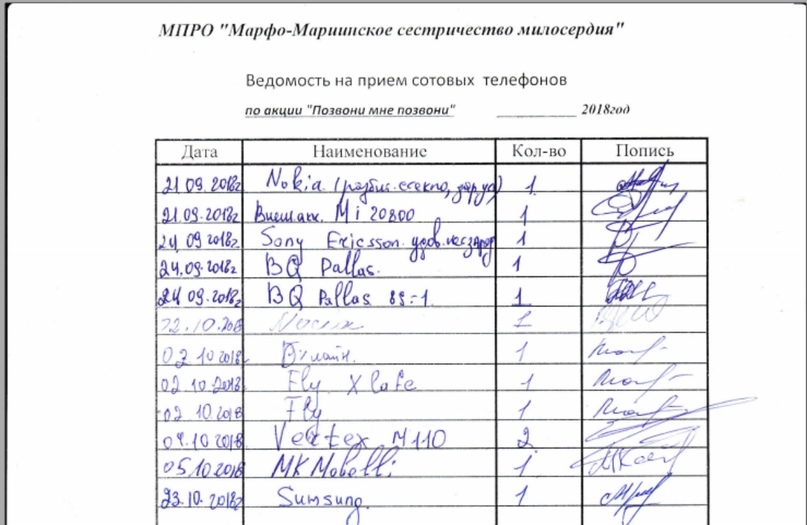 МПРО "Марфо-Мариинское сестричество милосердия"
Ведомость на прием сотовых телефонов
по акции "Позвони мне позвони" __________ 2018год
Дата Наименование Кол-во Попись
21 09. 2018г Nokia (разбит. стекло, ) 1
21 09. 2018г Внеш. акк. Mi 20800 1
24 09 2018г. Sony Ericsson. 1
24.09. 2018г BQ Pallas. 1
24 09. 2018г. BQ Pallas 1
22.10.2018 1
02 10 2018 Билайн. 1
02 10 2018 Fly X 1
02. 10 2018 Fly 1
04.10 2018 Vertex M110 2
05 10 2018 MK Mobelli 1
23.10. 2018г Sumsung. 1